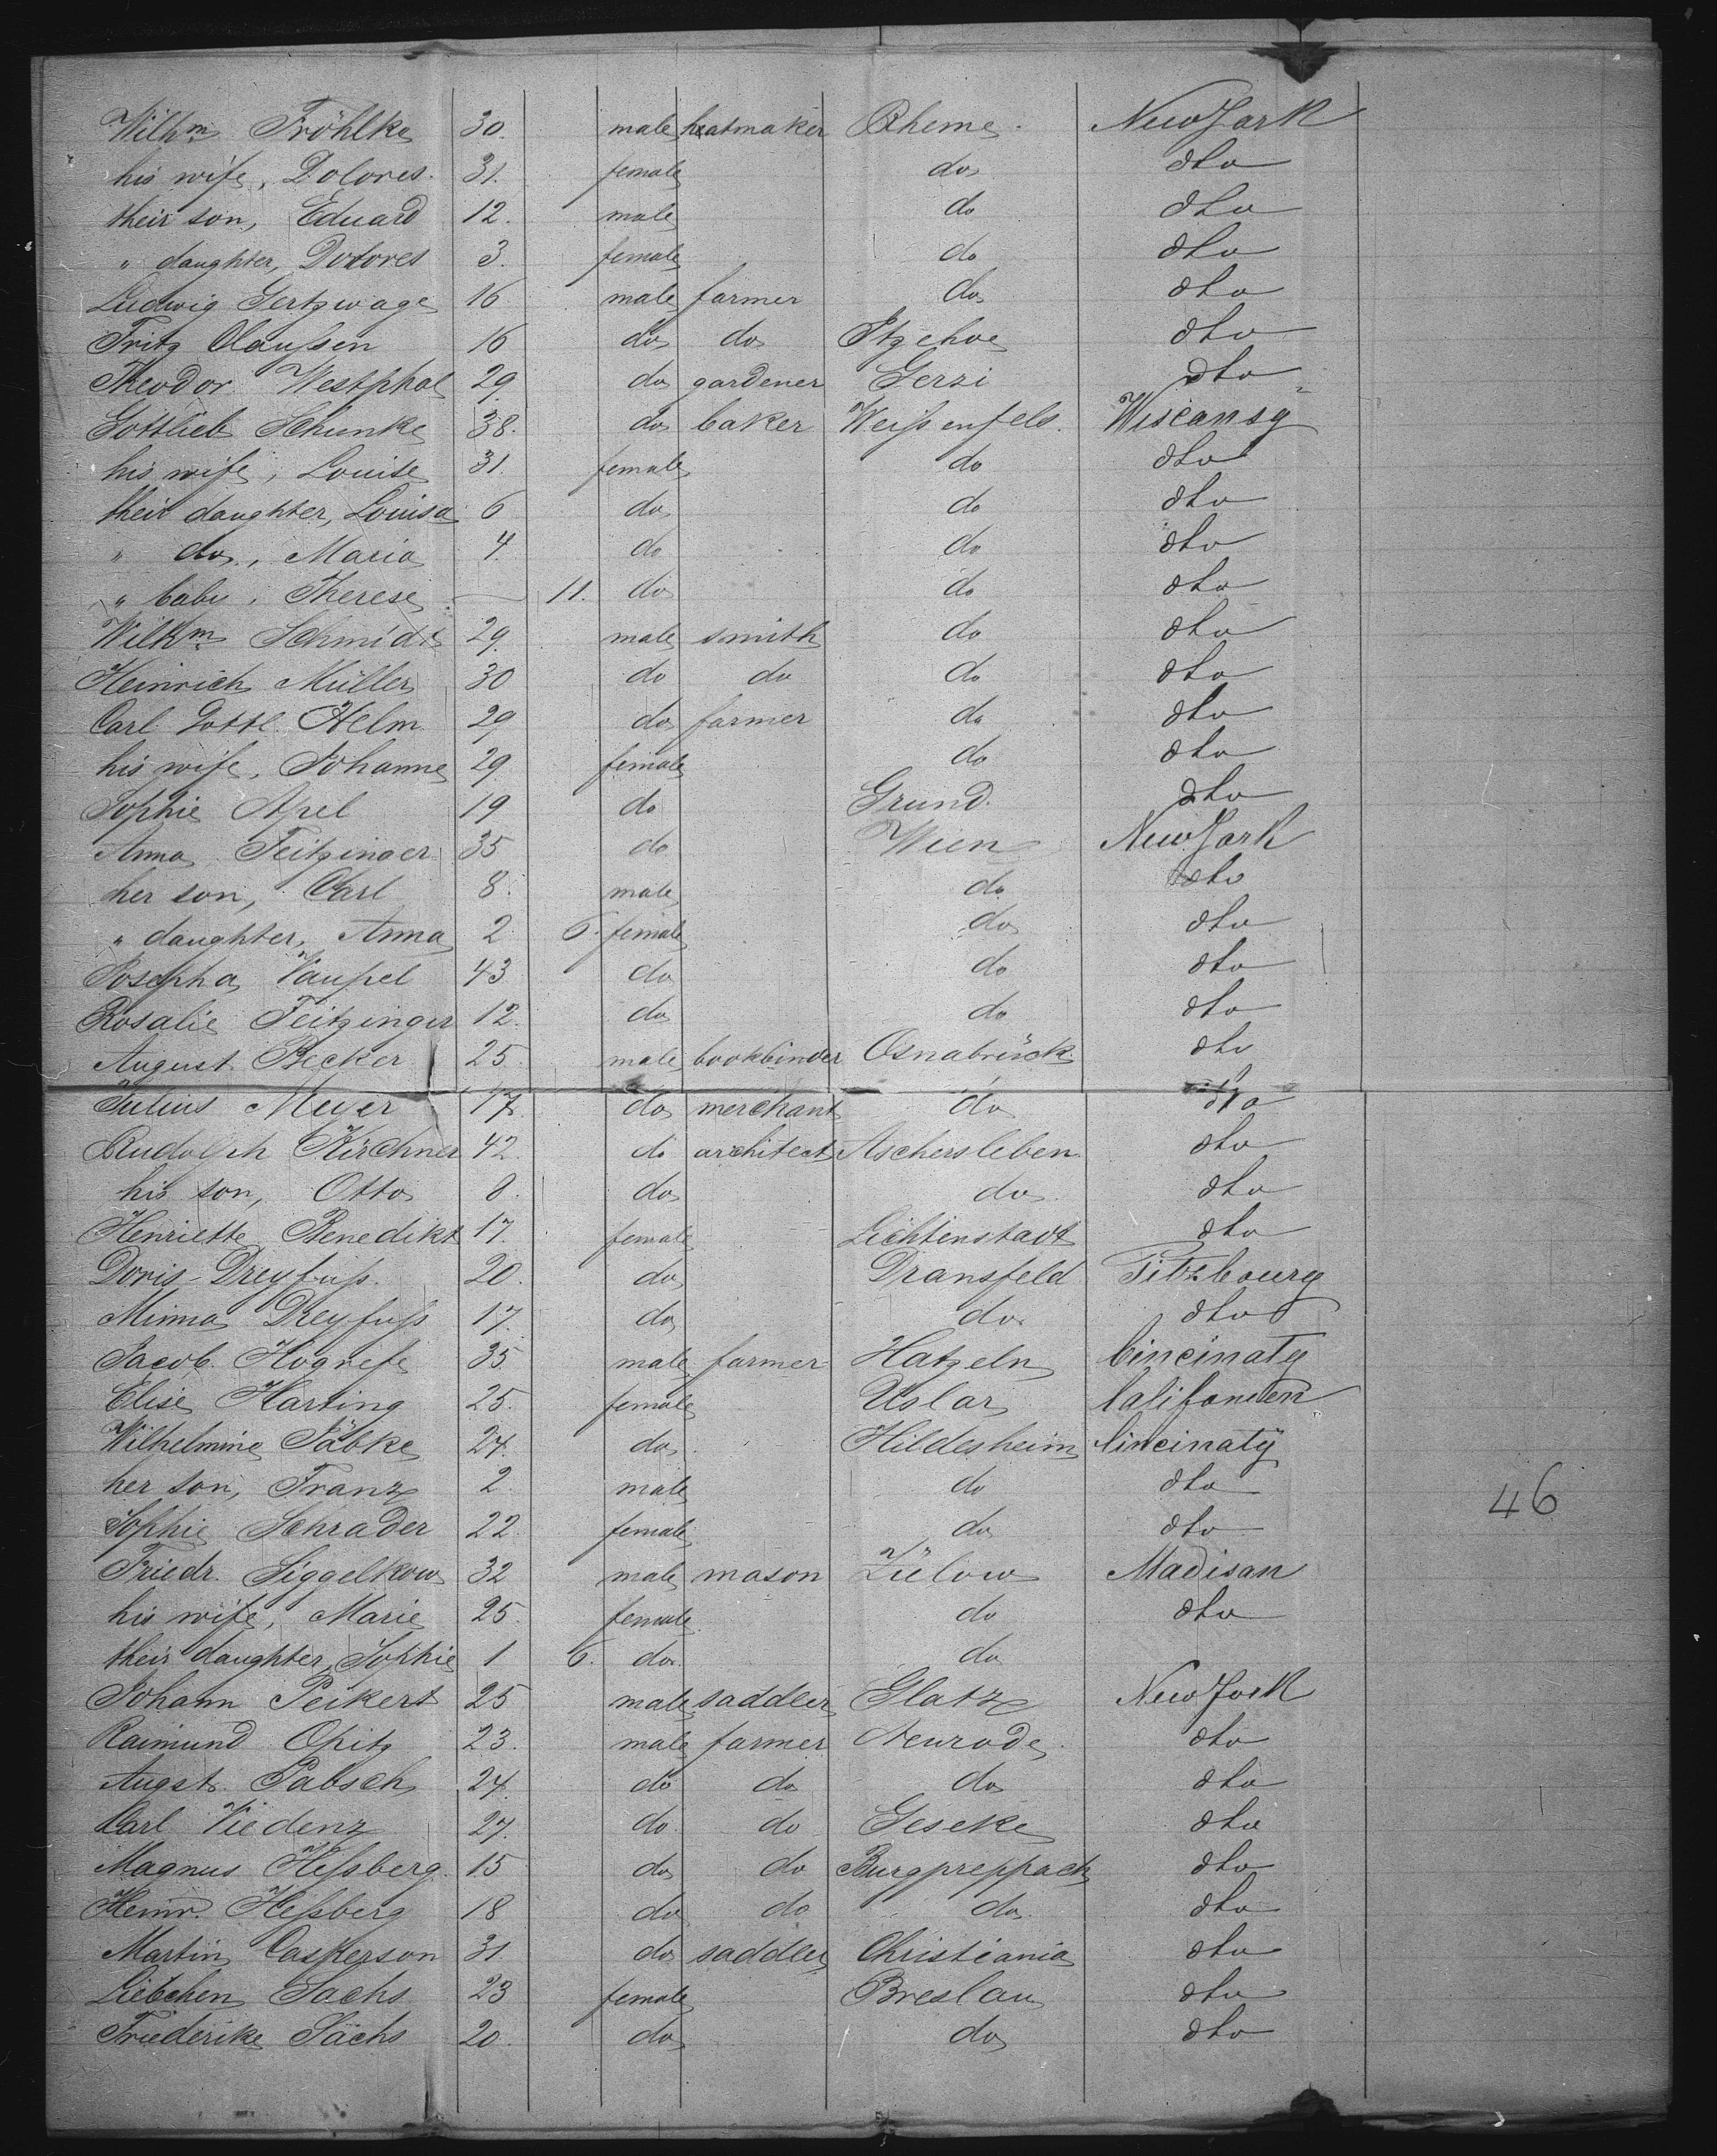 Wilhm Fröhlke 30. male hatmaker Rheme. New York
his wife, Dolores. 31. female do dto
their son, Eduard 12. male do dto
" daughter, Dolores 3. female do dto
Ludwig Gertzwage 16 male farmer do dto
Fritz Claußen 16 do do Itzehoe dto
Theodor Westphal 29. do gardener Gerzi dto
Gottlieb Schunke 38. do baker Weißenfels. Wiscansy
his wife, Louise 31. female do dto
their daughter, Louisa 6 do do dto
" do, Maria 4. do do dto
" baby, Therese — 11. do do dto
Wilhm Schmidt 29. male smith do dto
Heinrich Müller 30 do do do dto
Carl Gottl. Helm 29 do farmer do dto
his wife, Johanne 29 female do dto
Sophie Apel 19 do Grund. dto
Anna Feitzinger 35 do Wien New York
her son, Carl 8. male do dto
" daughter, Anna 2 6. female do dto
Josepha Vaupel 43 do do dto
Rosalie Feitzinger 12. do do dto
August Becker 25. male bookbinder Osnabrück. dto
Julius Meyer 17. do merchant do dto
Rudolph Kirchner 42. do architect Aschersleben dto
his son, Otto 8. do do dto
Henriette Benedikt 17. female Lichtenstadt dto
Doris Dreyfuß. 20. do Dransfeld Pitzbourg
Minna Dreyfuß 17. do do dto
Jacob Hogrefe 35. male farmer Hatzeln Cincinaty
Elise Harting 25. female Uslar Califonien
Wilhelmine Jäbke 24. do Hildesheim Cincinaty
her son, Franz 2. male do dto
Sophie Schrader 22. female do dto
46
Friedr. Siggelkow 32 male mason Zülow Madisan
his wife, Marie 25. female do dto
their daughter, Sophie 1 6. do do
Johann Peikert 25 male saddler Glatz New York
Raimund Opitz 23. male farmer Neurode dto
Augst. Pabsch 24. do do do dto
Carl Viedenz 27. do do Geseke dto
Magnus Heßberg. 15 do do Burgpreppach dto
Heinr. Heßberg 18 do do do dto
Martin Casperson 31. do saddler Christiania dto
Liebchen Sachs 23 female Breslau dto
Friederike Sachs 20. do do dto